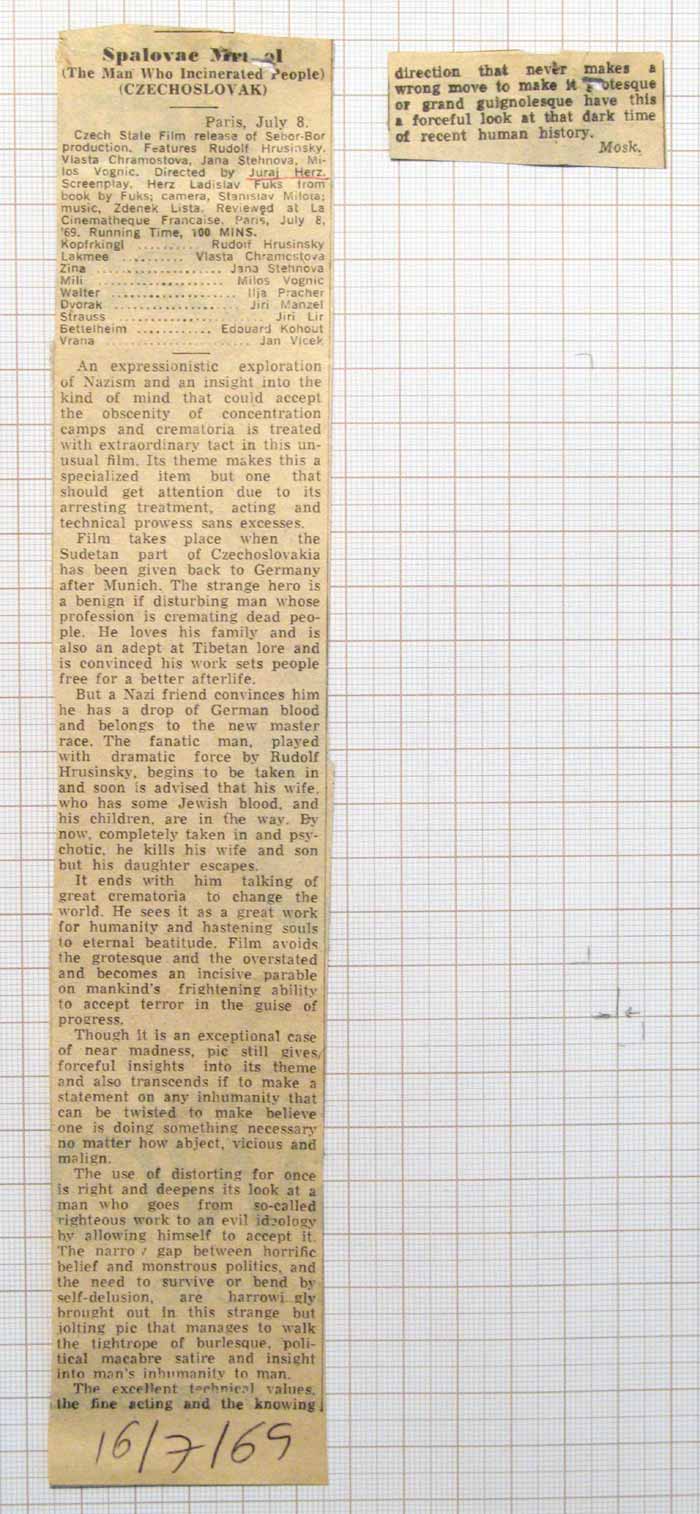 Spalovac
(The Man Who Incinerated People)
(CZECHOSLOVAK)
Paris, July 8.
Czech State Film release of Sebor-Bor
production. Features Rudolf Hrusinsky,
Vlasta Chramostova, Jana Stehnova, Mi-
los Vognic. Directed by Juraj Herz.
Screenplay, Herz Ladislav Fuks from
book by Fuks; camera, Stanislav Milota;
music, Zdenek Lista. Reviewed at La
Cinematheque Francaise, Paris, July 8,
'69. Running Time, 100 MINS.
Kopfrkingl .......... Rudolf Hrusinsky
Lakmee .......... Vlasta Chramostova
Zina .................. Jana Stehnova
Mili .................... Milos Vognic
Walter .................. Ilja Pracher
Dvorak .................. Jiri Manzel
Strauss .................... Jiri Lir
Bettelheim ........... Edouard Kohout
Vrana ...................... Jan Vlcek
An expressionistic exploration
of Nazism and an insight into the
kind of mind that could accept
the obscenity of concentration
camps and crematoria is treated
with extraordinary tact in this un-
usual film. Its theme makes this a
specialized item but one that
should get attention due to its
arresting treatment, acting and
technical prowess sans excesses.
Film takes place when the
Sudetan part of Czechoslovakia
has been given back to Germany
after Munich. The strange hero is
a benign if disturbing man whose
profession is cremating dead peo-
ple. He loves his family and is
also an adept at Tibetan lore and
is convinced his work sets people
free for a better afterlife.
But a Nazi friend convinces him
he has a drop of German blood
and belongs to the new master
race. The fanatic man, played
with dramatic force by Rudolf
Hrusinsky, begins to be taken in
and soon is advised that his wife,
who has some Jewish blood, and
his children, are in the way. By
now, completely taken in and psy-
chotic, he kills his wife and son
but his daughter escapes.
It ends with him talking of
great crematoria to change the
world. He sees it as a great work
for humanity and hastening souls
to eternal beatitude. Film avoids
the grotesque and the overstated
and becomes an incisive parable
on mankind's frightening ability
to accept terror in the guise of
progress.
Though it is an exceptional case
of near madness, pic still gives
forceful insights into its theme
and also transcends if to make a
statement on any inhumanity that
can be twisted to make believe
one is doing something necessary
no matter how abject, vicious and
malign.
The use of distorting for once
is right and deepens its look at a
man who goes from so-called
righteous work to an evil ideology
by allowing himself to accept it.
The narrow gap between horrific
belief and monstrous politics, and
the need to survive or bend by
self-delusion, are harrowi gly
brought out in this strange but
jolting pic that manages to walk
the tightrope of burlesque, poli-
tical macabre satire and insight
into man's inhumanity to man.
The excellent technical values,
the fine acting and the knowing
16/7/69
direction that never makes a
wrong move to make it grotesque
or grand guignolesque have this
a forceful look at that dark time
of recent human history.
Mosk.